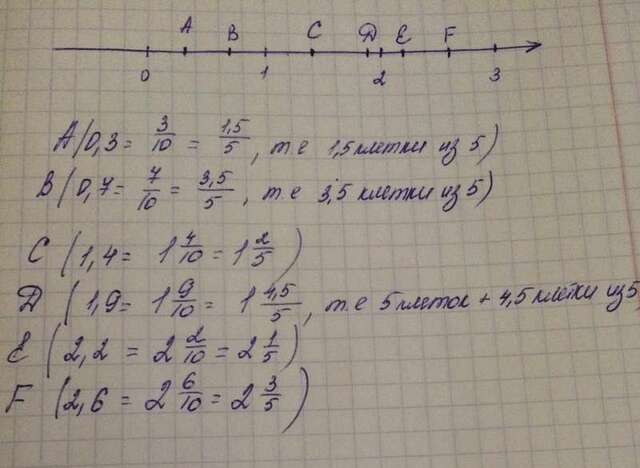 A B C D E F
0 1 2 3
A (0,3 = 3/10 = 1,5/5, т.е 1,5 клетки из 5)
B (0,7 = 7/10 = 3,5/5, т.е 3,5 клетки из 5)
C (1,4 = 1 4/10 = 1 2/5)
D (1,9 = 1 9/10 = 1 4,5/5, т.е 5 клеток + 4,5 клетки из 5
E (2,2 = 2 2/10 = 2 1/5)
F (2,6 = 2 6/10 = 2 3/5)